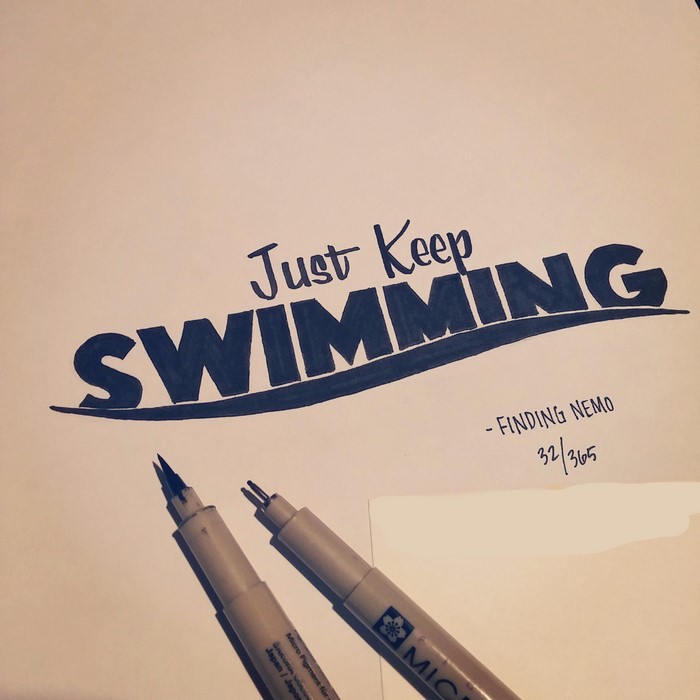 Just Keep
SWIMMING
- FINDING NEMO
32/365
Micro Pigment Ink
Japan / Japon